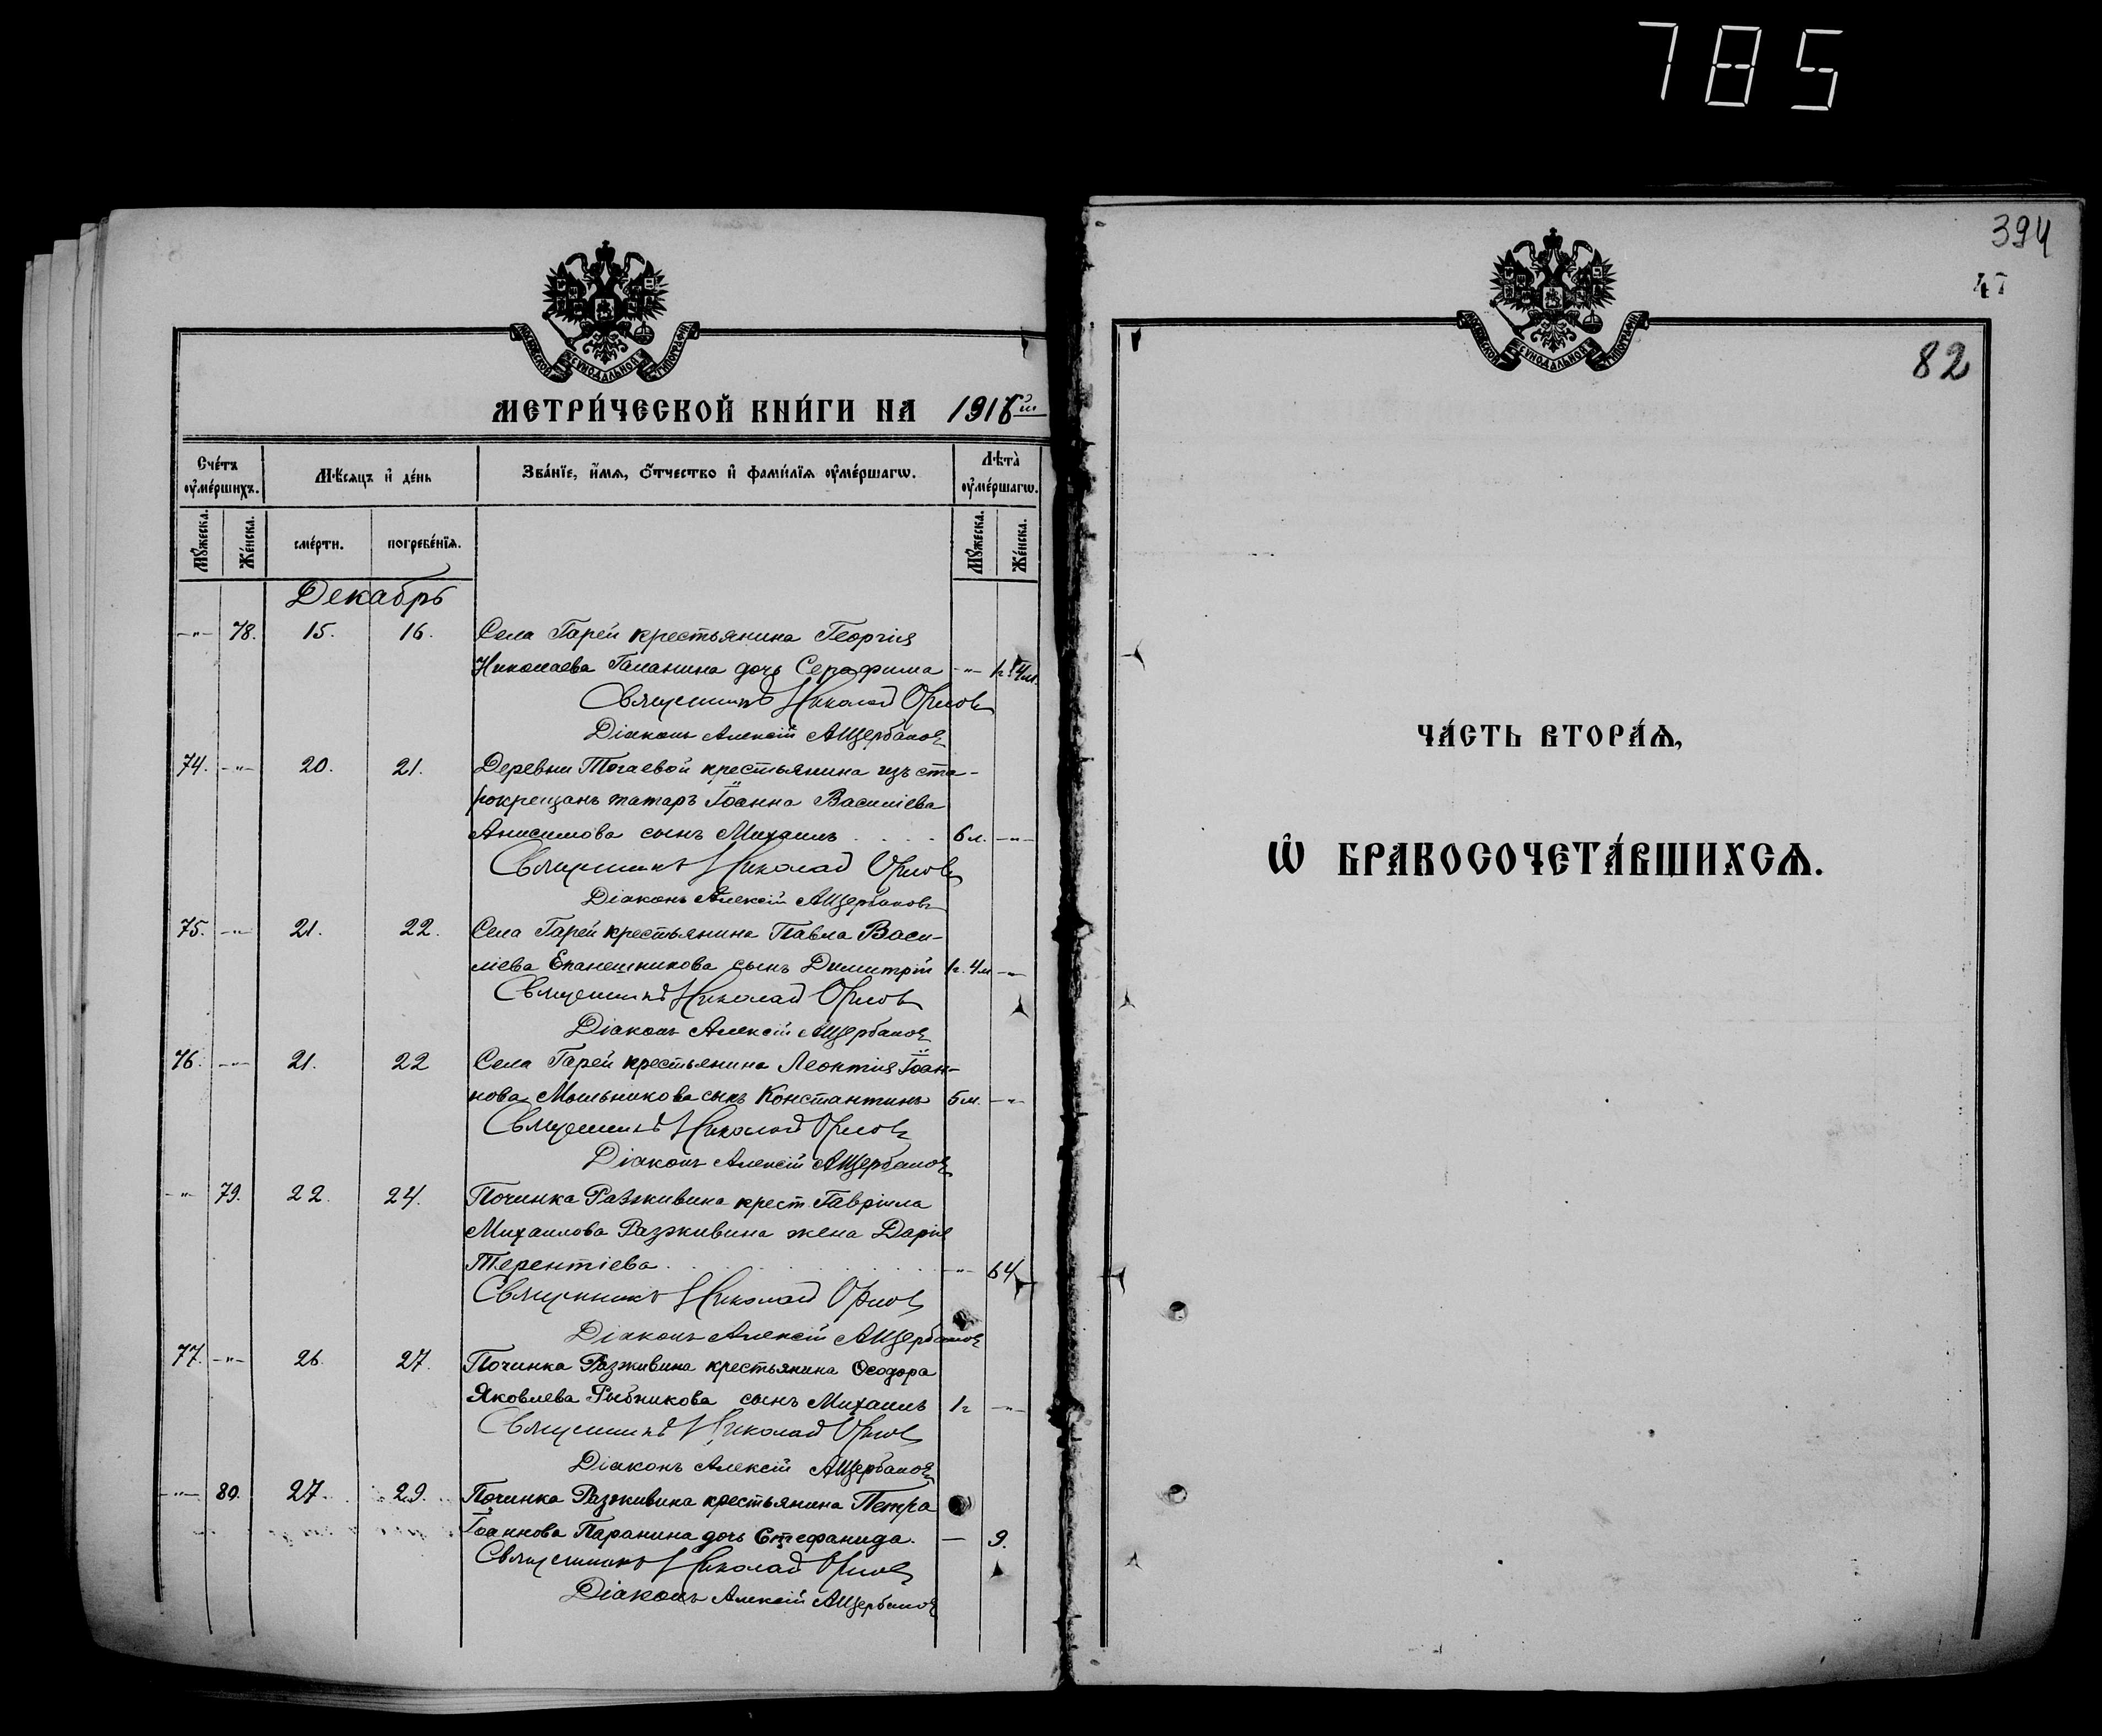 785
394
47
82
МОСКОВСКОЙ СѴНОДАЛЬНОЙ ТИПОГРАФІИ
МЕТРИ́ЧЕСКОЙ КНИ́ГИ НА 1916 й
Сче́тъ ᲂу҆ме́ршихъ.
Мѣ́сяцъ и҆ де́нь
Зва́нїе, и҆́мѧ, ѻ҆́тчество и҆ фами́лїѧ ᲂу҆ме́ршагѡ.
Лѣта̀ ᲂу҆ме́ршагѡ.
Мꙋ́жеска.
Же́нска.
сме́рти.
погребе́нїѧ.
Мꙋ́жеска.
Же́нска.
Декабрь
-"- 78. 15. 16. Села Гарей крестьянина Георгія
Николаева Галанина дочь Серафима -"- 1г. 4м.
Священникъ Николай Орлов
Діаконъ Алексій А Щербаков
74. -"- 20. 21. Деревни Тогаевой крестьянина изъ ста-
рокрещанъ татаръ Іоанна Василіева
Анисимова сынъ Михаилъ . . . . 6 л. -"-
Священникъ Николай Орловъ
Діаконъ Алексій А Щербаковъ
75. -"- 21. 22. Села Гарей крестьянина Павла Васи-
ліева Епанешникова сынъ Димитрій 1г. 4м -"-
Священникъ Николай Орлов
Діаконъ Алексій А Щербаков
76. -"- 21. 22 Села Гарей крестьянина Леонтія Іоан-
нова Мыльникова сынъ Константинъ 5м. -"-
Священникъ Николай Орлов
Діаконъ Алексій А Щербаков
-"- 79. 22. 24. Починка Разживина крест. Гавріила
Михаилова Разживина жена Дарія
Терентіева . . . . . . . -"- 64
Священникъ Николай Орлов
Діаконъ Алексій А Щербаков
77. -"- 26. 27. Починка Разживина крестьянина Ѳеодора
Яковлева Рыбникова сынъ Михаилъ 1г -"-
Священникъ Николай Орлов
Діаконъ Алексій А Щербаков
-"- 80. 27. 29. Починка Разживина крестьянина Петра
Іоаннова Паранина дочь Стефанида. — 9.
Священникъ Николай Орлов
Діаконъ Алексій А Щербаков
МОСКОВСКОЙ СѴНОДАЛЬНОЙ ТИПОГРАФІИ
ЧА́СТЬ ВТОРА́Ѧ,
Ѡ҆ БРАКОСОЧЕТА́ВШИХСѦ.